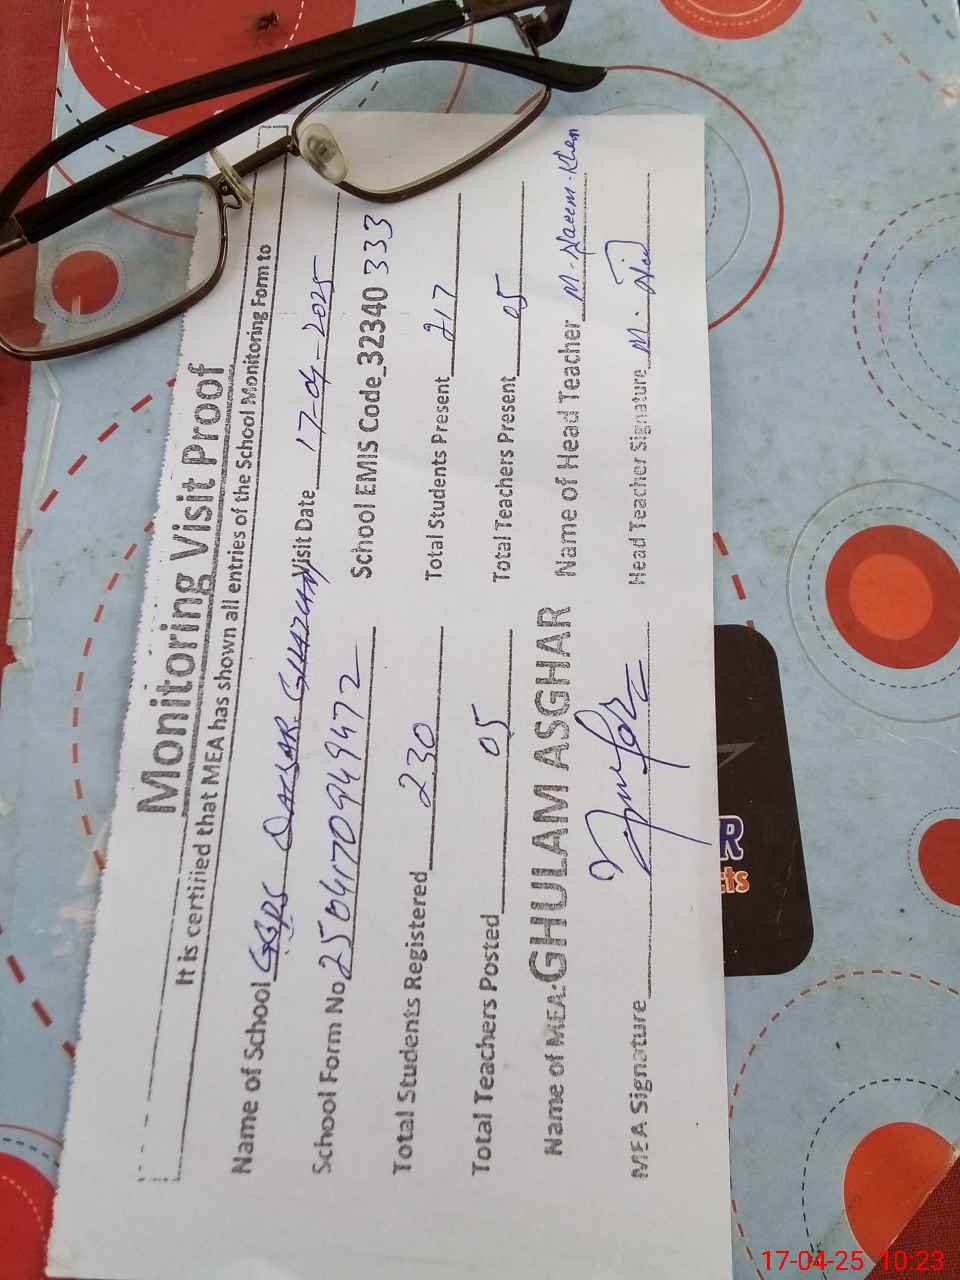 Monitoring Visit Proof
It is certified that MEA has shown all entries of the School Monitoring Form to
Name of School GGPS QAISAR GHAZLANI Visit Date 17-04-2025
School Form No. 2504170949472 School EMIS Code_32340 333
Total Students Registered 230 Total Students Present 217
Total Teachers Posted 05 Total Teachers Present 05
Name of MEA: GHULAM ASGHAR Name of Head Teacher M. Naeem Khan
MEA Signature Head Teacher Signature M.
R
cts
17-04-25 10:23